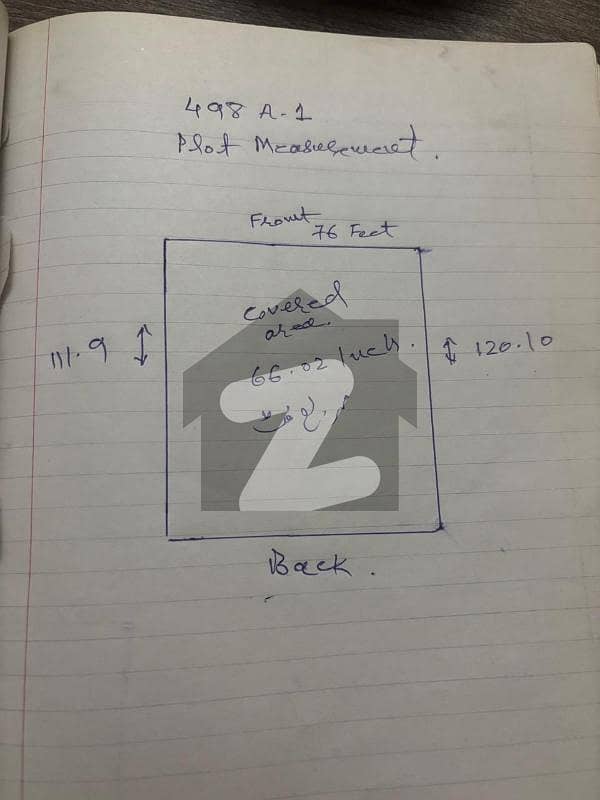 498 A-1
Plot Measurement.
Front 76 Feet
Covered
area.
111.9
66.02 Inch.
120.10
Back.